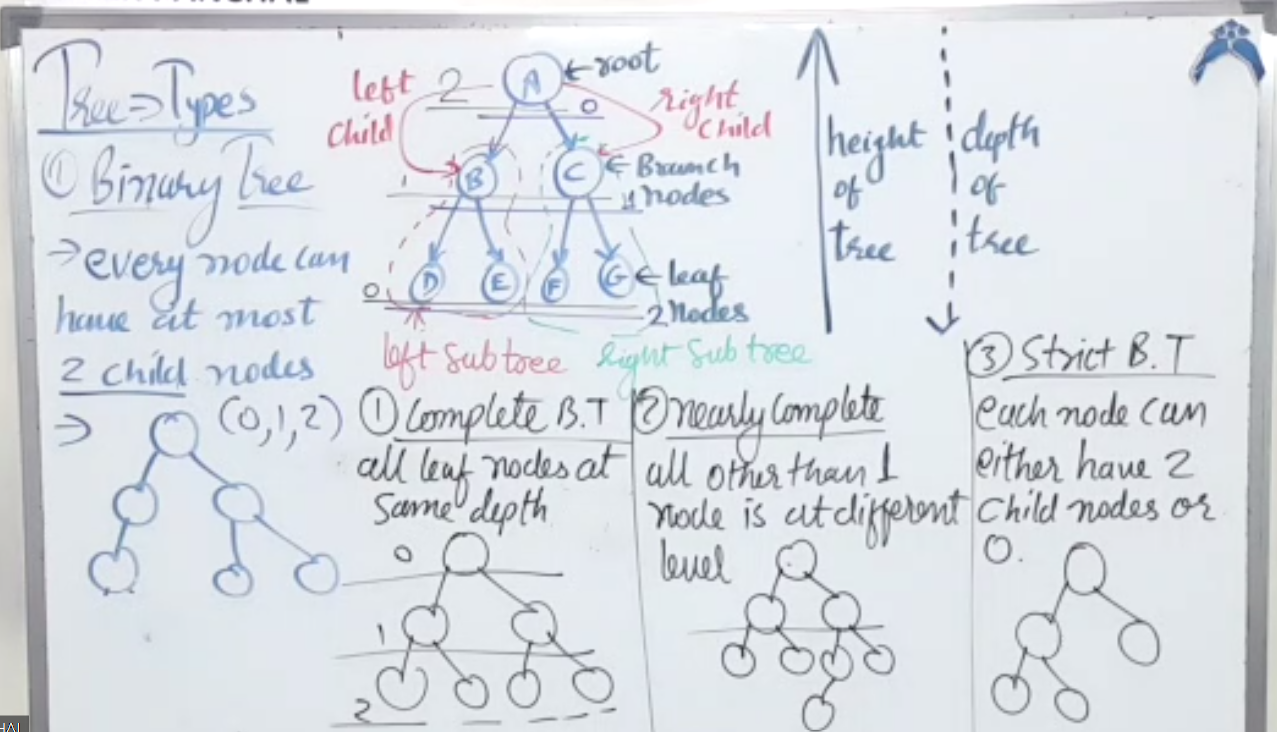 Tree⇒Types
① Binary Tree
→ every node can
have at most
2 child nodes
⇒ (0,1,2)
left
child
2
A
←root
0
right
child
1
B
C
← Branch
1 nodes
0
D
E
F
G
← leaf
2 nodes
left subtree
right subtree
height
of
tree
depth
of
tree
① Complete B.T
all leaf nodes at
same depth
0
1
2
② nearly complete
all other than 1
node is at different
level
③ Strict B.T
each node can
either have 2
child nodes or
0.